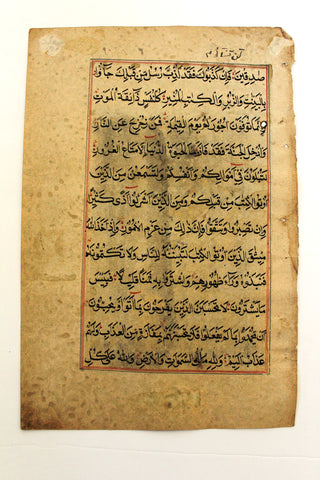 صٰدِقِينَ فَاِنْ كَذَّبُوكَ فَقَدْ كُذِّبَ رُسُلٌ مِنْ قَبْلِكَ جَآؤُ
بِالْبَيِّنٰتِ وَالزُّبُرِ وَالْكِتٰبِ الْمُنِيرِ كُلُّ نَفْسٍ ذَآئِقَةُ الْمَوْتِ
وَاِنَّمَا تُوَفَّوْنَ اُجُورَكُمْ يَوْمَ الْقِيٰمَةِ فَمَنْ زُحْزِحَ عَنِ النَّارِ
وَاُدْخِلَ الْجَنَّةَ فَقَدْ فَازَ وَمَا الْحَيٰوةُ الدُّنْيَآ اِلَّا مَتَاعُ الْغُرُورِ
لَتُبْلَوُنَّ فِىٓ اَمْوَالِكُمْ وَاَنْفُسِكُمْ وَلَتَسْمَعُنَّ مِنَ الَّذِينَ
اُوتُوا الْكِتٰبَ مِنْ قَبْلِكُمْ وَمِنَ الَّذِينَ اَشْرَكُوٓا اَذًى كَثِيرًا
وَاِنْ تَصْبِرُوا وَتَتَّقُوا فَاِنَّ ذٰلِكَ مِنْ عَزْمِ الْاُمُورِ وَاِذْ اَخَذَ اللّٰهُ
مِيثَاقَ الَّذِينَ اُوتُوا الْكِتٰبَ لَتُبَيِّنُنَّهُ لِلنَّاسِ وَلَا تَكْتُمُونَهُ
فَنَبَذُوهُ وَرَآءَ ظُهُورِهِمْ وَاشْتَرَوْا بِهِ ثَمَنًا قَلِيلًا فَبِئْسَ
مَا يَشْتَرُونَ لَا تَحْسَبَنَّ الَّذِينَ يَفْرَحُونَ بِمَآ اَتَوْا وَيُحِبُّونَ
اَنْ يُحْمَدُوا بِمَا لَمْ يَفْعَلُوا فَلَا تَحْسَبَنَّهُمْ بِمَفَازَةٍ مِنَ الْعَذَابِ وَلَهُمْ
عَذَابٌ اَلِيمٌ وَلِلّٰهِ مُلْكُ السَّمٰوٰتِ وَالْاَرْضِ وَاللّٰهُ عَلٰى كُلِّ